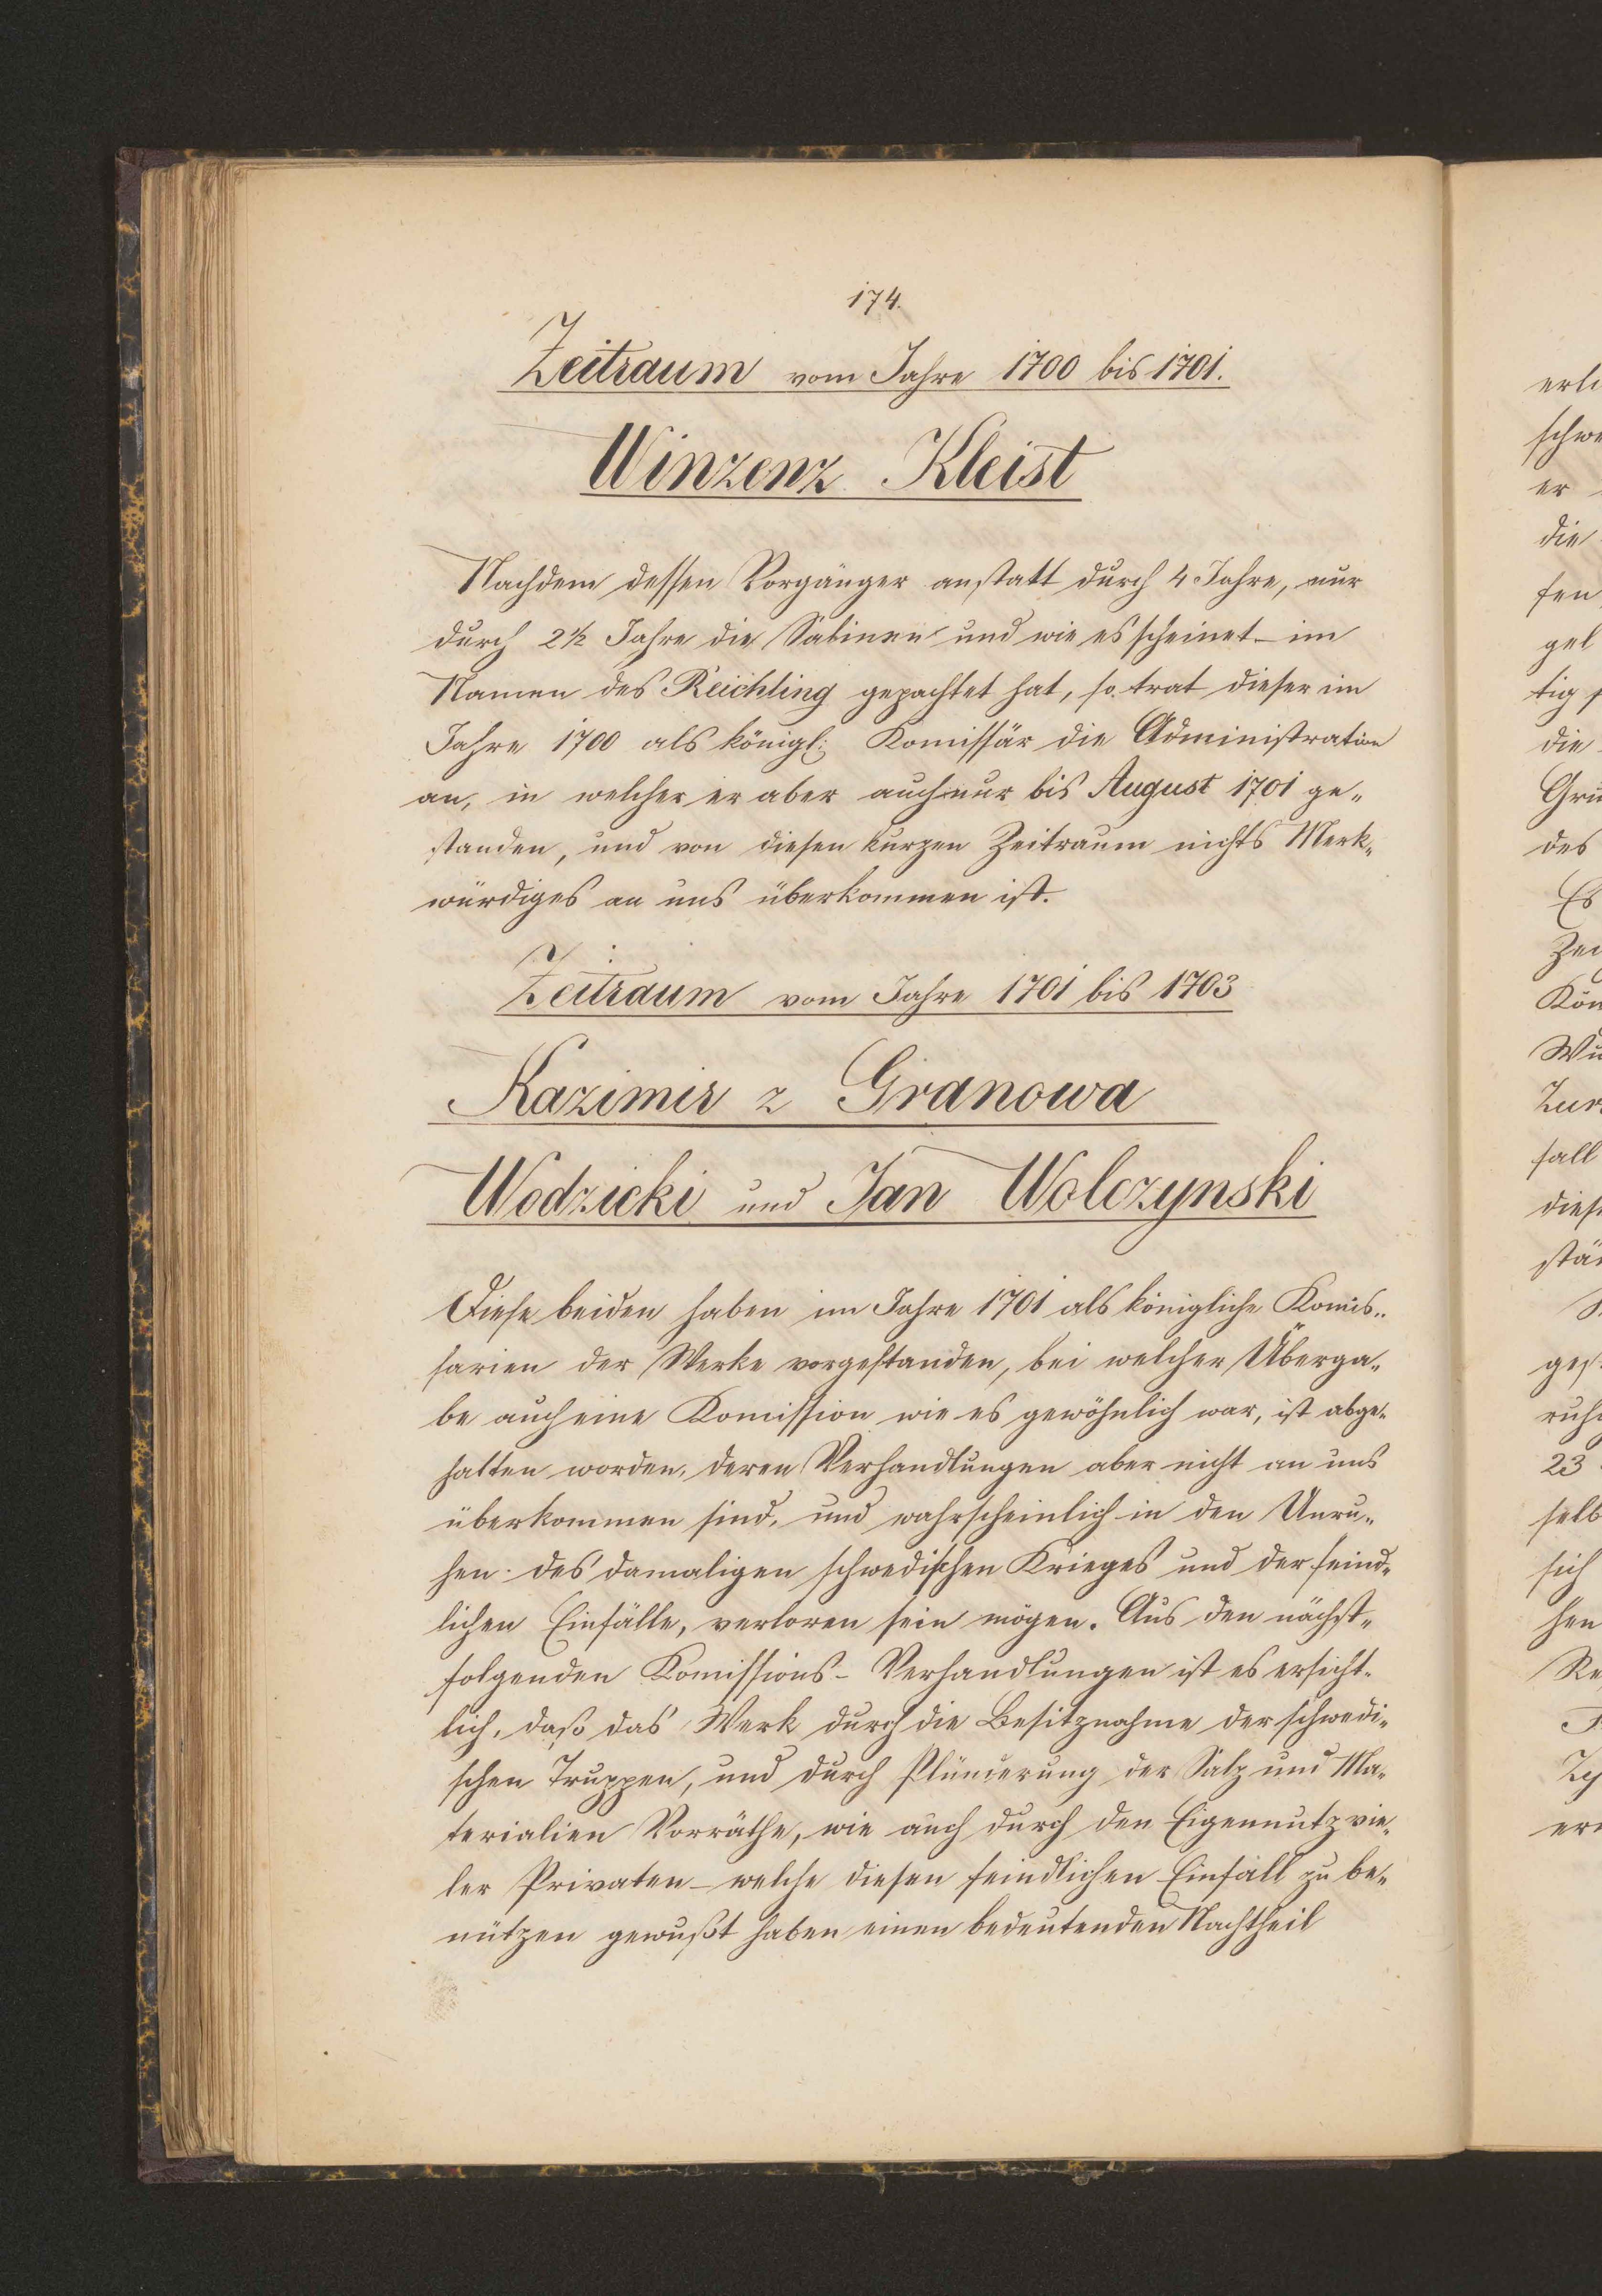 174.
Zeitraum vom Jahre 1700 bis 1701.
Winzenz Kleist
Nachdem dessen Vorgänger anstatt durch 4 Jahre, nur
durch 2½ Jahre die Salinen und wie es scheinet – im
Namen des Reichling gepachtet hat, so trat dieser im
Jahre 1700 als königl: Komissär die Administration
an, in welcher er aber auch nur bis August 1701 ge-
standen, und von diesen kurzen Zeitraum nichts Merk-
würdiges an uns überkommen ist.
Zeitraum vom Jahre 1701 bis 1703
Kazimir z Granowa
Wodzicki und Jan Wolczynski
Diese beiden haben im Jahre 1701 als königliche Komis-
sarien der Werke vorgestanden, bei welcher Überga-
be auch eine Komission wie es gewöhnlich war, ist abge-
halten worden, deren Verhandlungen aber nicht an uns
überkommen sind, und wahrscheinlich in den Unru-
hen des damaligen schwedischen Krieges und der feind-
lichen Einfälle, verloren sein mögen. Aus den nächst-
folgenden Komissions-Verhandlungen ist es ersicht-
lich, daß das Werk durch die Besitznahme der schwedi-
schen Truppen, und durch Plünderung der Salz und Ma-
terialien Vorräthe, wie auch durch den Eigennutz vie-
ler Privaten – welche diesen feindlichen Einfall zu be-
nützen gewußt haben einen bedeutenden Nachtheil